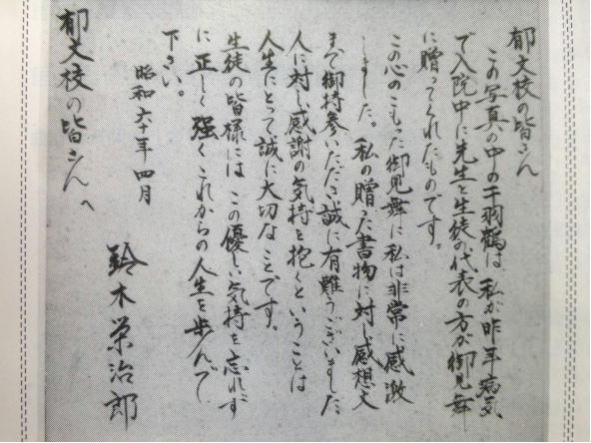 郁文校の皆さん
この写真の中の千羽鶴は、私が昨年病気
で入院中に先生と生徒の代表の方が御見舞
に贈ってくれたものです。
この心のこもった御見舞に私は非常に感激
しました。私の贈った書物に対し感想文
まで御持参いただき誠に有難うございました
人に対し感謝の気持を抱くということは
人生にとって誠に大切なことです。
生徒の皆様には この優しい気持を忘れず
に 正しく 強くこれからの人生を歩んで
下さい。
昭和六十年四月
鈴木栄治郎
郁文校の皆さんへ